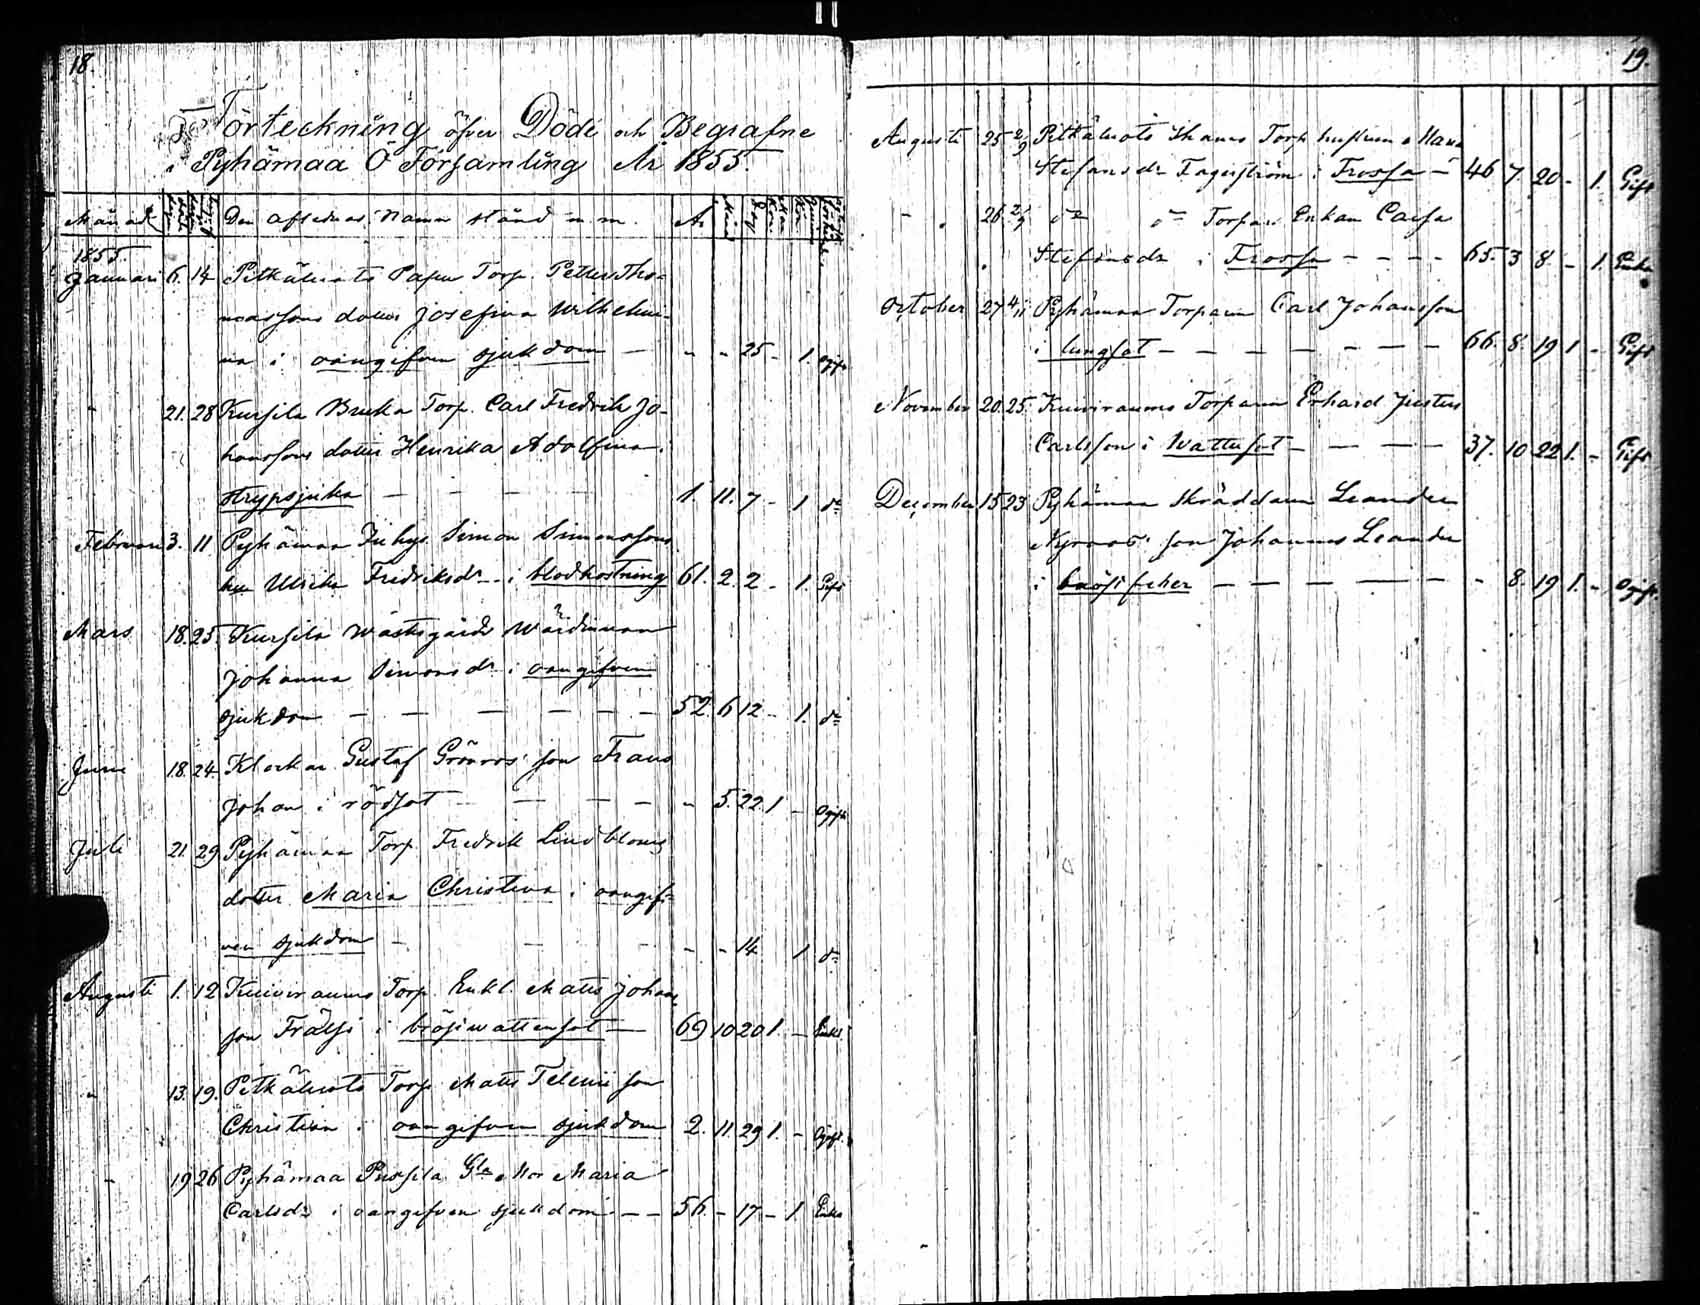 18.
Förteckning öfver Döde och Begrafne
i Pyhämaa Ö Församling År 1855.
Månad Den aflednas Namn stånd m.m. År
1855.
Januari 6. 14 Pitkäluoto Papu Torp. Petter Tho-
massons dotter Josefina Wilhelmi-
na i oangifven sjukdom — - - 25 - 1. ogift
" 21. 28 Kursila Bruka Torp. Carl Fredrik Jo-
hanssons dotter Henrika Adolfina i
strypsjuka — — — 1. 11. 7 - 1 do
Februari 3. 11 Pyhämaa Inhys. Simon Simonssons
hu Ulrika Fredriksdr i blodhostning 61. 2. 2 - 1. Gift
Mars 18. 25. Kursila Wästergårds Wärdinnan
Johanna Simonsdr i oangifven
sjukdom — — — — — 52. 6 12 - 1. do
Juni 18. 24 Klockar Gustaf Grönroos' son Frans
Johan i rödsot — — — — - 5. 22. 1 - ogift
Juli 21. 29 Pyhämaa Torp. Fredrik Lindbloms
dotter Maria Christina i oangif-
ven sjukdom — — — - - 14 1 do
Augusti 1. 12 Kuivirauma Torp. Enkl. Matts Johans
son i bröstwattensot — 69 10 20 1. - Enkl.
" 13. 19. Pitkäluoto Torp. Matts son
Christian i oangifven sjukdom 2. 11. 29 1. - Ogift.
" 19 26 Pyhämaa Gla Mor Maria
Carlsdr i oangifven sjukdom — — 56. - 17 - 1. Enka
19.
Augusti 25 2/9 Pitkäluoto Torp. hustrun Maria
Stefansdr Fagerström i Frossa — 46 7. 20 - 1. Gift
" 26 2/9 do do Torpare Enkan Caisa
Stefansdr i Frossa — — — — 65. 3 8 - 1. Enka
October 27 4/11 Pyhämaa Torparen Carl Johansson
i lungsot — — — — — — — 66. 8. 19 1 - Gift
November 20. 25. Kuivirauma Torparen Erhard Justus
Carlsson i Wattusot — — — — 37. 10 22 1. - Gift
December 15 23 Pyhämaa Skräddaren Leander
Nyroos' son Johannes Leander
i bröstfeber — — — — — — - 8. 19 1. - ogift